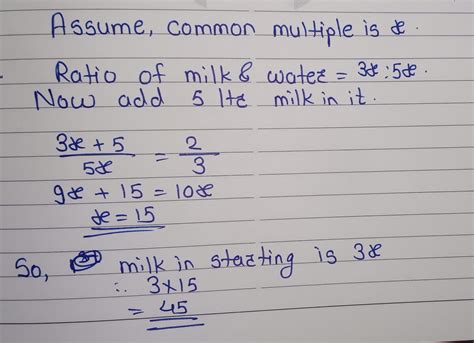 Assume, common multiple is x.
Ratio of milk & water = 3x : 5x.
Now add 5 ltr milk in it.
3x + 5 / 5x = 2 / 3
9x + 15 = 10x
x = 15
So, milk in starting is 3x
∴ 3×15
= 45